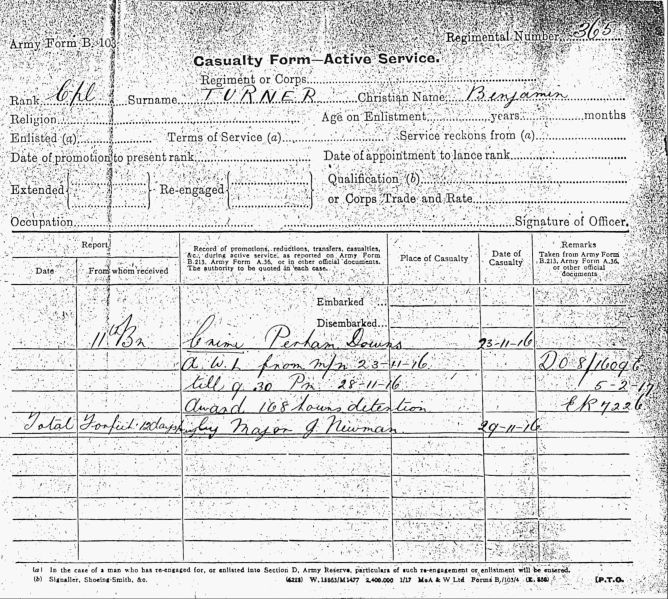 Army Form B. 103
Regimental Number 365
Casualty Form—Active Service.
Regiment or Corps
Rank Cpl Surname TURNER Christian Name Benjamin
Religion Age on Enlistment years months
Enlisted (a) Terms of Service (a) Service reckons from (a)
Date of promotion to present rank Date of appointment to lance rank
Extended Re-engaged Qualification (b)
or Corps Trade and Rate
Occupation Signature of Officer.
Report
Date From whom received
Record of promotions, reductions, transfers, casualties,
&c., during active service, as reported on Army Form
B.213, Army Form A.36, or in other official documents.
The authority to be quoted in each case.
Place of Casualty
Date of
Casualty
Remarks
Taken from Army Form
B.213, Army Form A.36,
or other official
documents
Embarked ...
Disembarked...
11th Bn Crime Perham Downs 23-11-16
A.W.L from m/n 23-11-16 DO 8/1609E
till 9.30 Pm 28-11-16 5-2-17
Award 168 hours detention ER 7226
Total Forfeit 12 days pay by Major J Newman 29-11-16
(a) In the case of a man who has re-engaged for, or enlisted into Section D, Army Reserve, particulars of such re-engagement or enlistment will be entered.
(b) Signaller, Shoeing-Smith, &c. 2,400,000 1/17 McA & W Ltd Forms B./103/4 [P.T.O.